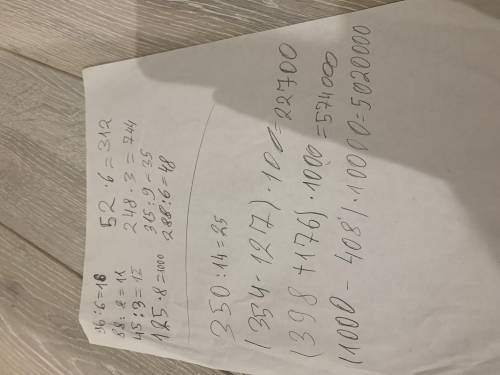 96:6=16
88:8=11
45:3=15
125·8=1000
52·6=312
248·3=744
315:9=35
288:6=48
350:14=25
(354-127)·100=22700
(398+176)·1000=574000
(1000-408)·10000=5020000